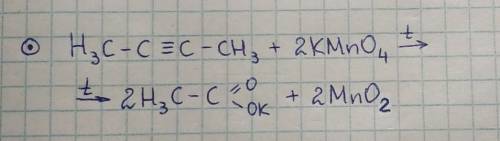 ⊙ H₃C – C ≡ C – CH₃ + 2KMnO₄ →ᵗ
→ᵗ 2H₃C – C (=O) – OK + 2MnO₂